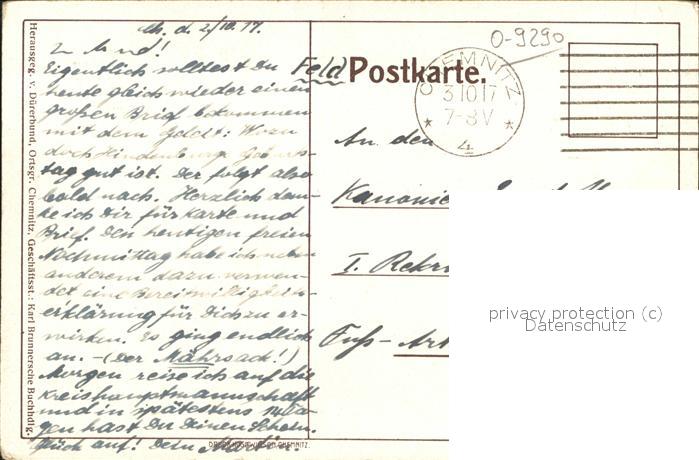 Ch. d. 2/10. 17.
Eigentlich solltest Du
heute gleich wieder einen
großen Brief bekommen
mit dem Geldt: Wozu
doch Hindenburgs Geburts-
tag gut ist. Der folgt also
bald nach. Herzlich dan-
ke ich Dir für Karte und
Brief. Den heutigen freien
Nachmittag habe ich neben
anderem dazu verwen-
det eine Bereitwilligkeits-
erklärung für Dich zu er-
wirken. Es ging endlich
an. - (Der Mährsach!)
Morgen reise ich auf die
Kreishauptmannschaft
und in spätestens 14 Ta-
gen hast Du Deinen Schein.
Glück auf! Dein
Feld Postkarte.
O-9290
CHEMNITZ
3.10.17
7-8V
* 4 *
An den
Kanonie
I. Rekr
Fuss-Art
Herausgeg. v. Dürerbund, Ortsgr. Chemnitz. Geschäftsst.: Karl Brunnersche Buchhdlg.
CHEMNITZ.
privacy protection (c)
Datenschutz